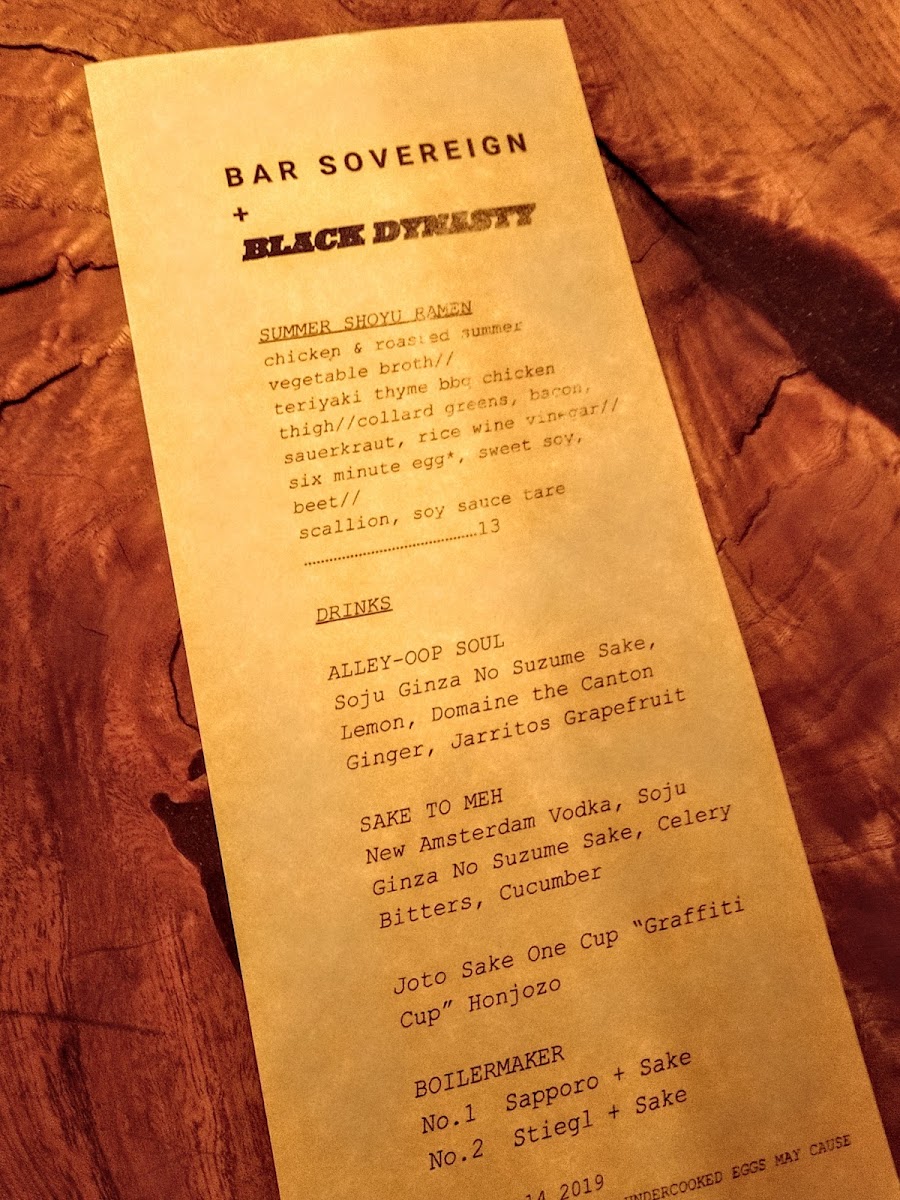 BAR SOVEREIGN
+
BLACK DYNASTY
SUMMER SHOYU RAMEN
chicken & roasted summer
vegetable broth//
teriyaki thyme bbq chicken
thigh//collard greens, bacon,
sauerkraut, rice wine vinegar//
six minute egg*, sweet soy,
beet//
scallion, soy sauce tare
……………………………………13
DRINKS
ALLEY-OOP SOUL
Soju Ginza No Suzume Sake,
Lemon, Domaine the Canton
Ginger, Jarritos Grapefruit
SAKE TO MEH
New Amsterdam Vodka, Soju
Ginza No Suzume Sake, Celery
Bitters, Cucumber
Joto Sake One Cup “Graffiti
Cup” Honjozo
BOILERMAKER
No.1 Sapporo + Sake
No.2 Stiegl + Sake
14 2019
UNDERCOOKED EGGS MAY CAUSE